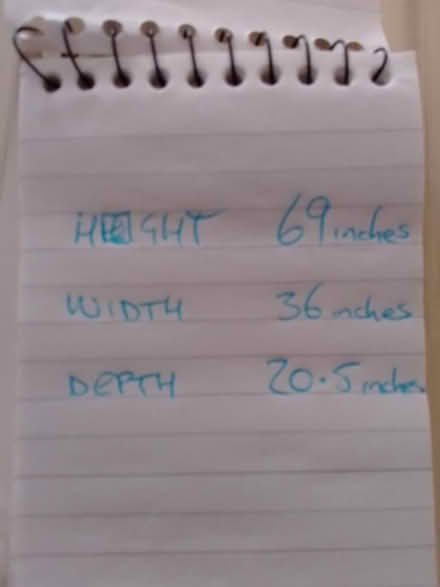 HEIGHT 69 inches
WIDTH 36 inches
DEPTH 20.5 inches